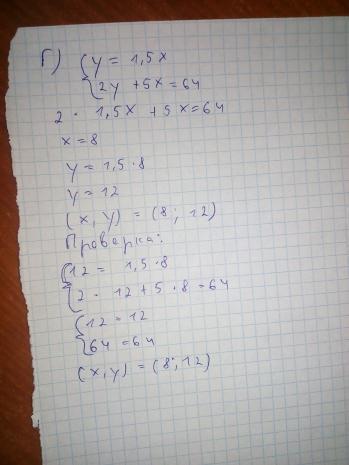 Г) { y = 1,5x
{ 2y + 5x = 64
2 · 1,5x + 5x = 64
x = 8
y = 1,5 · 8
y = 12
(x, y) = (8; 12)
Проверка:
{ 12 = 1,5 · 8
{ 2 · 12 + 5 · 8 = 64
{ 12 = 12
{ 64 = 64
(x, y) = (8; 12)